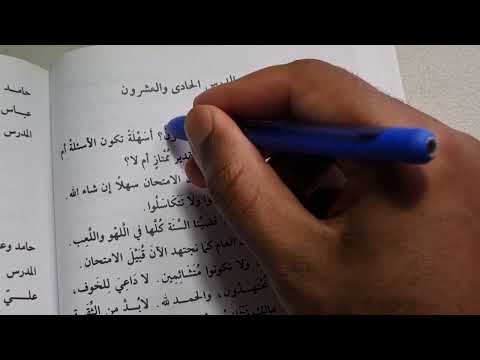 الدرس الحادى والعشرون
حامد
عباس
المدرس
؟ أسَهْلَةً تكون الأسئلةُ أم
تقدير مُمْتازٍ أم لا؟
الامتحان سهلًا إن شاء الله.
ولا تَتَكَاسَلُوا.
قضَيْنا السَّنة كُلَّها في اللَّهو واللَّعب.
العام كما نجتهد الآنَ قُبَيْلَ الامتحان.
ولا تكونوا مُتَشَائِمين. لا دَاعِيَ لِلخَوف،
مُجْتَهِدُون، والحمد لله. لابُدَّ من الثِّقَة
حامد
المدرس
عليّ